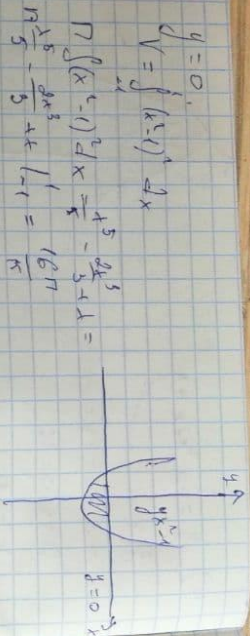 y = 0
V = ∫₋₁ (x²-1)² dx
П ∫(x²-1)² dx = x⁵/5 - 2x³/3 + x =
П x⁵/5 - 2x³/3 + x |¹₋₁ = 16П/15
y
y=x²-1
y=0
x